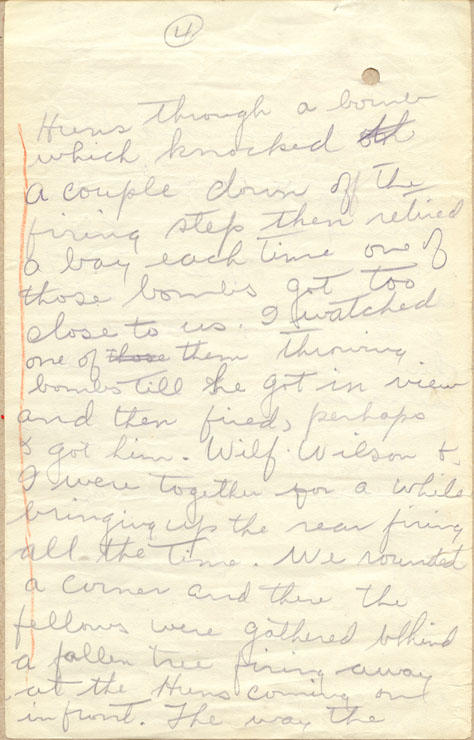 4
Huns through a bomb
which knocked oth
a couple down off the
firing step then retired
a bay each time one of
those bombs got too
close to us. I watched
one of those them throwing
bombs till he got in view
and then fired, perhaps
I got him. Wilf. Wilson &
I were together for a while
bringing up the rear firing
all the time. We rounded
a corner and there the
fellows were gathered behind
a fallen tree firing away
at the Huns coming on
infront. The way the